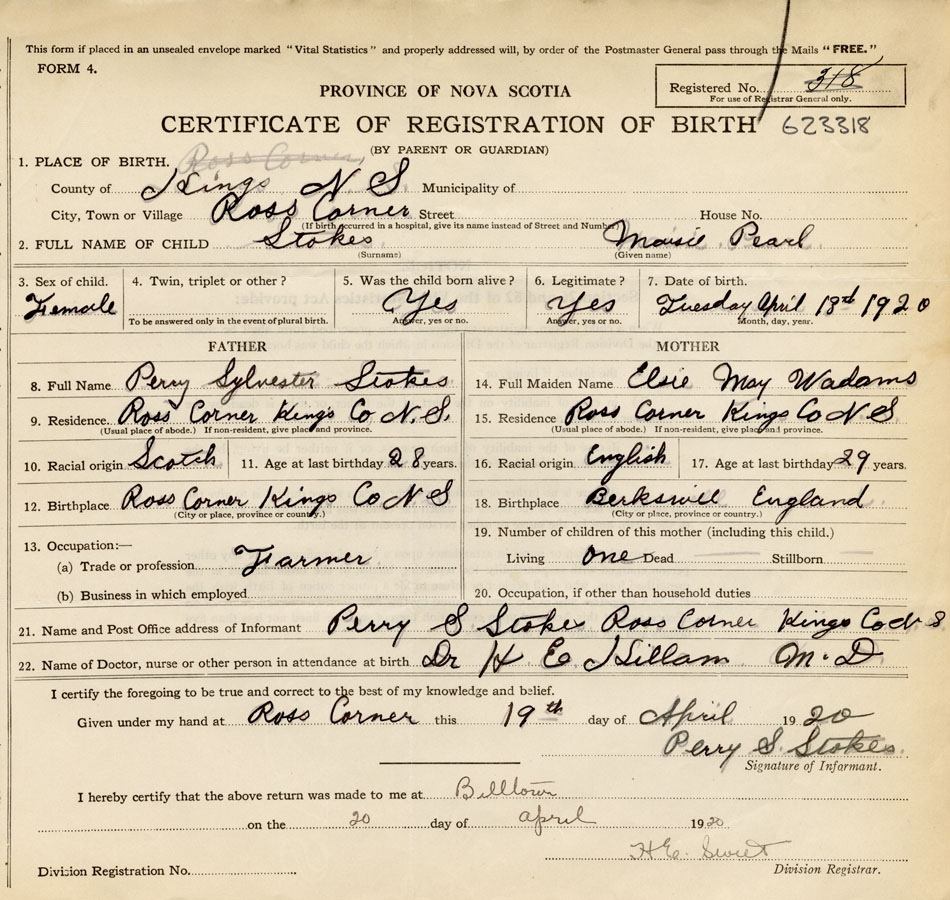 This form if placed in an unsealed envelope marked "Vital Statistics" and properly addressed will, by order of the Postmaster General pass through the Mails "FREE."
FORM 4.
Registered No. 318
For use of Registrar General only.
PROVINCE OF NOVA SCOTIA
CERTIFICATE OF REGISTRATION OF BIRTH 623318
(BY PARENT OR GUARDIAN)
1. PLACE OF BIRTH. Ross Corner,
County of Kings N S Municipality of
City, Town or Village Ross Corner Street House No.
(If birth occurred in a hospital, give its name instead of Street and Number)
2. FULL NAME OF CHILD Stokes Maisie Pearl
(Surname) (Given name)
3. Sex of child. 4. Twin, triplet or other? 5. Was the child born alive? 6. Legitimate? 7. Date of birth.
Female Yes Yes Tuesday April 13th 1920
To be answered only in the event of plural birth. Answer, yes or no. Answer, yes or no. Month, day, year.
FATHER MOTHER
8. Full Name Perry Sylvester Stokes 14. Full Maiden Name Elsie May Wadams
9. Residence Ross Corner Kings Co N.S. 15. Residence Ross Corner Kings Co N S
(Usual place of abode.) If non-resident, give place and province. (Usual place of abode.) If non-resident, give place and province.
10. Racial origin Scotch 11. Age at last birthday 28 years. 16. Racial origin English 17. Age at last birthday 29 years.
12. Birthplace Ross Corner Kings Co N S 18. Birthplace England
(City or place, province or country.) (City or place, province or country.)
13. Occupation:— 19. Number of children of this mother (including this child.)
(a) Trade or profession Farmer Living One Dead — Stillborn —
(b) Business in which employed 20. Occupation, if other than household duties
21. Name and Post Office address of Informant Perry S Stokes Ross Corner Kings Co N S
22. Name of Doctor, nurse or other person in attendance at birth Dr H E Killam M.D
I certify the foregoing to be true and correct to the best of my knowledge and belief.
Given under my hand at Ross Corner this 19th day of April 1920
Perry S. Stokes.
Signature of Informant.
I hereby certify that the above return was made to me at Billtown
on the 20 day of April 1920
H.E. Sweet
Division Registration No. Division Registrar.